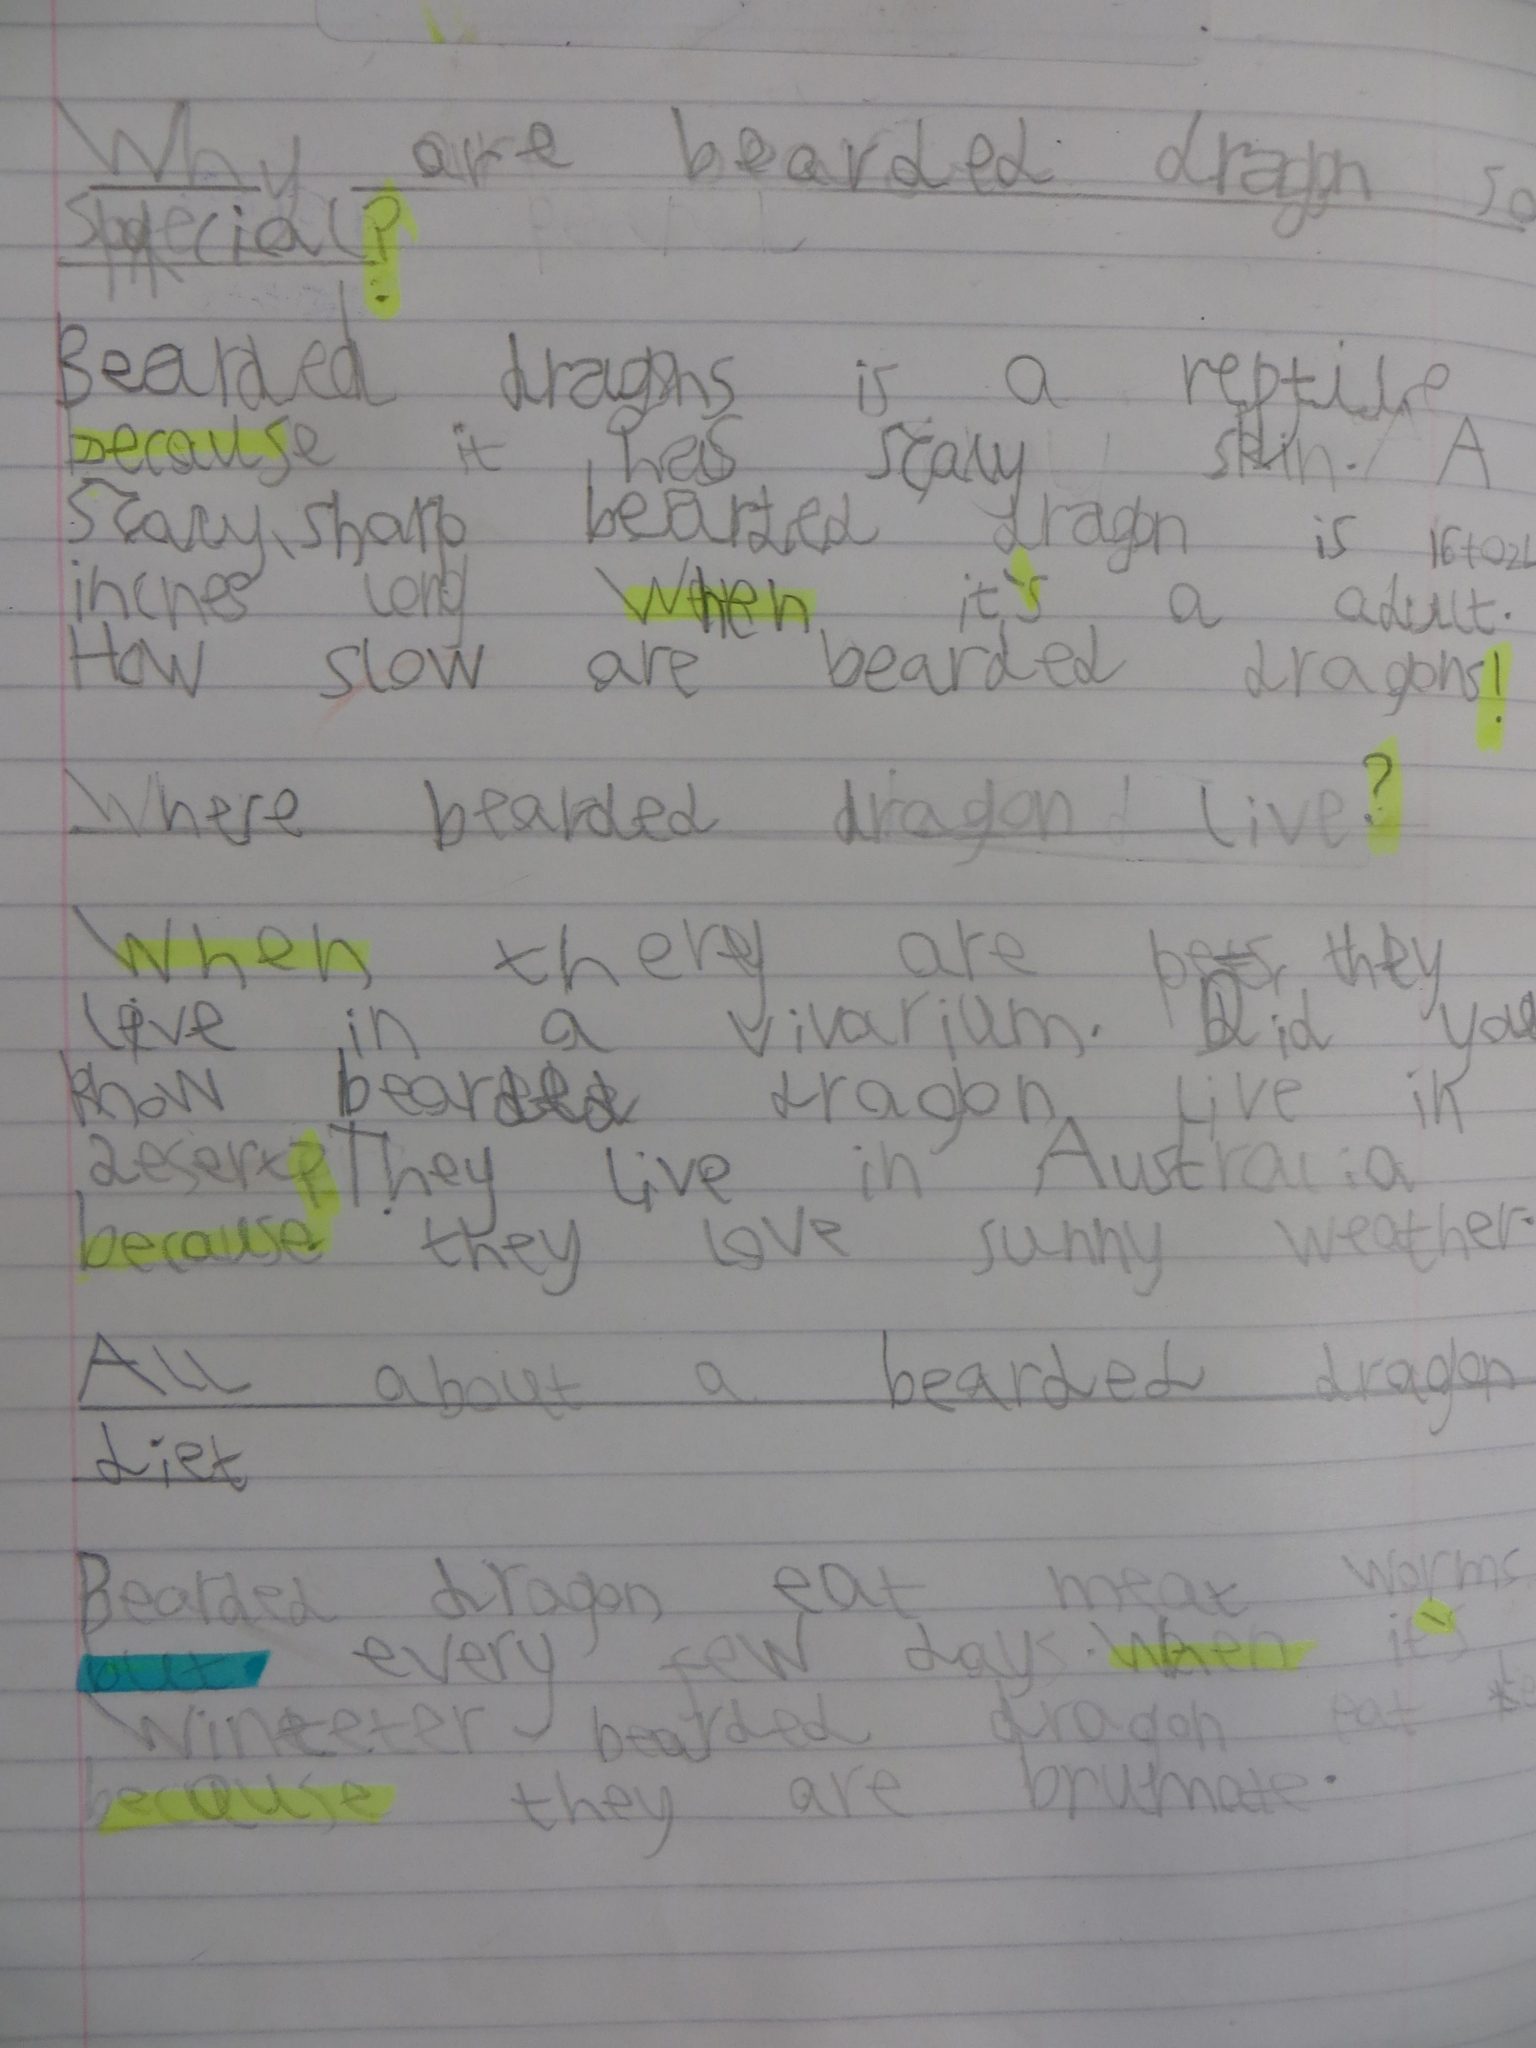 Why are bearded dragon so
special?
Bearded dragons is a reptile
because it has scaly skin. A
scaly, sharp bearded dragon is 16to24
inches long When it's a adult.
How slow are bearded dragons!
Where bearded dragon live?
When they are pets, they
live in a vivarium. Did you
know bearded dragon live in
desert? They live in Australia
because they love sunny weather.
All about a bearded dragon
diet
Bearded dragon eat meat worms
but every few days. When it's
Winteter bearded dragon eat
because they are brumate.